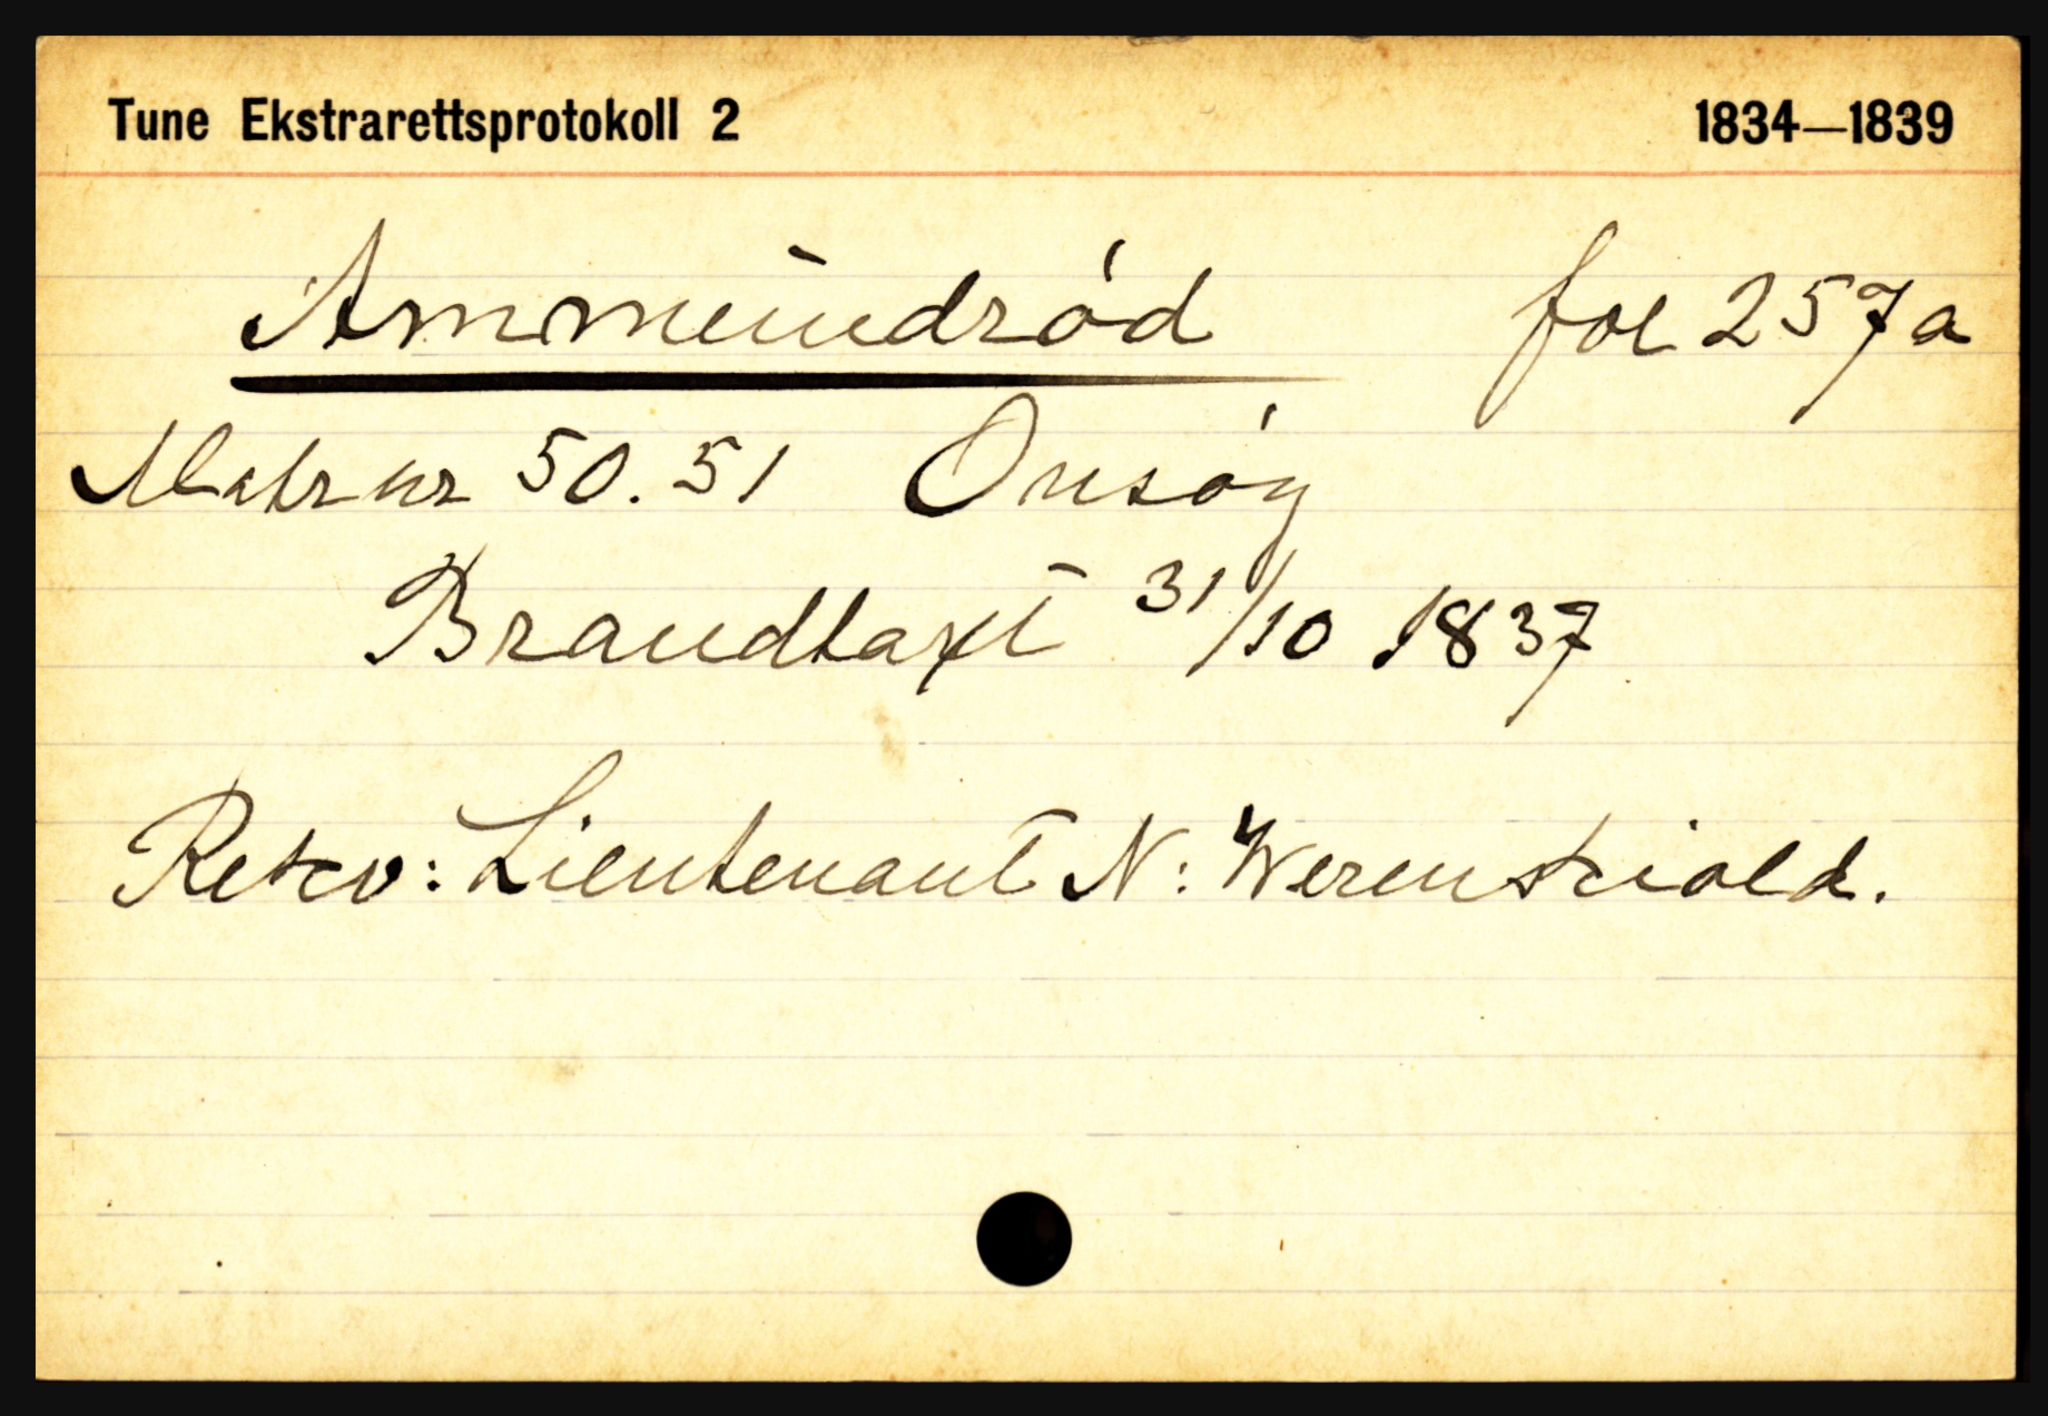 Tune Ekstrarettsprotokoll 2 1834—1839
Ammundród fol 257a
Matr nr 50. 51 Onsóy
Brandtaxt 31/10 1837
Rekv: Lieutenant N: Werenskiold.